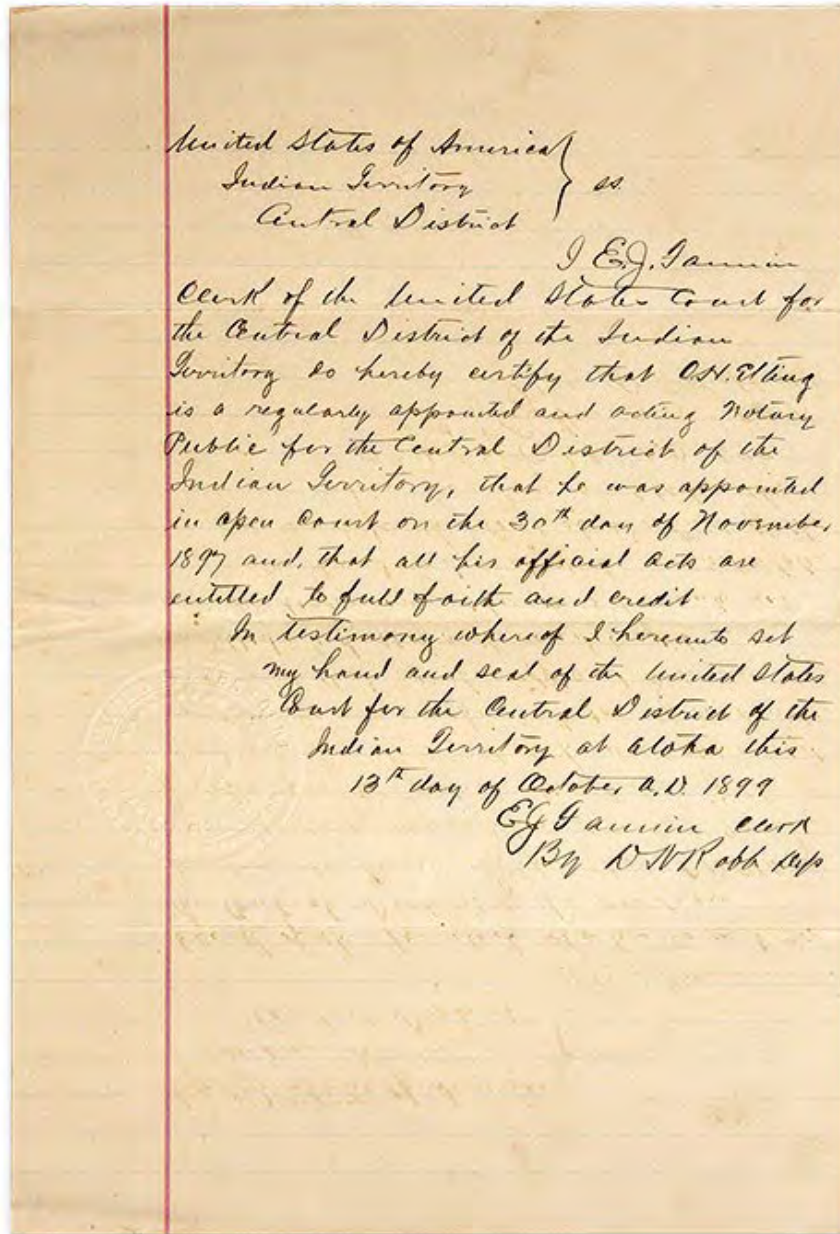 United States of America
Indian Territory } ss.
Central District
I E.J. Fannin
Clerk of the United States Court for
the Central District of the Indian
Territory do hereby certify that O.H. Elting
is a regularly appointed and acting Notary
Public for the Central District of the
Indian Territory, that he was appointed
in open Court on the 30th day of November
1897 and, that all his official acts are
entitled to full faith and credit
In testimony whereof I hereunto set
my hand and seal of the United States
Court for the Central District of the
Indian Territory at Atoka this
13th day of October A.D. 1899
EJ Fannin Clerk
By D N Robb Dep